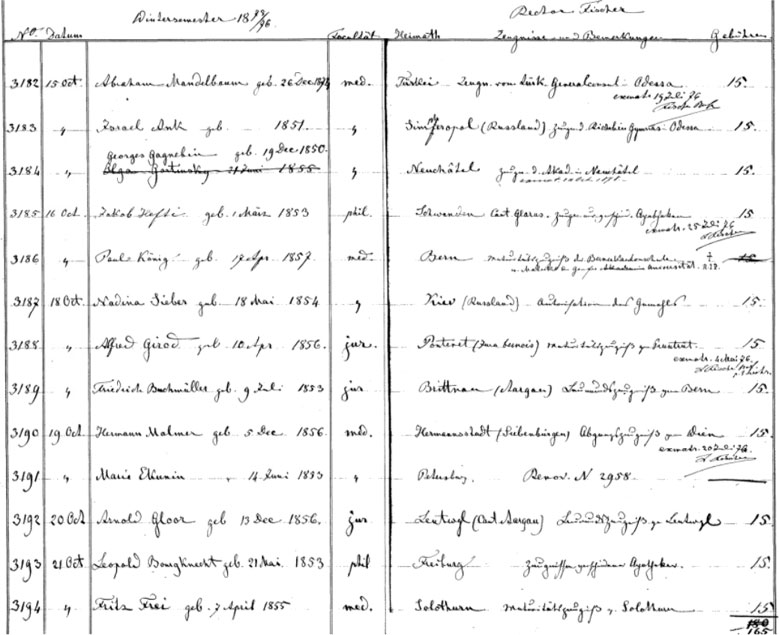 Wintersemester 1875/76 Rector Fischer
No. Datum Facultät Heimath Zeugnisse und Bemerkungen Gebühren
3182 15 Oct. Abraham Mandelbaum geb. 26 Dec 1874 med. Türkei Zeugn. vom türk. Generalconsul Odessa 15.
exmatr. 19 Juli 76
3183 " Israel Ank geb. 1851. " Simferopol (Russland) Zeugn. d. Richelieu Gymnas. Odessa 15.
Georges Gagnebin geb. 19 Dec 1850.
3184 " Olga Juni 1855 " Neuchâtel Zeugn. d. Akad. Neuchâtel 15.
3185 16 Oct. Jakob Hefti geb. 1 März 1853 phil. Schwanden Cant Glarus. Apotheker 15
exmatr. 25 Juli 76
3186 " Paul König geb. 17 Apr. 1857. med. Bern Maturitätszeugniß d. Berner Kantonsschule † 15
3187 18 Oct. Nadina Sieber geb 18 Mai 1854 " Kiev (Russland) Autorisation des Gemahls 15.
3188 " Alfred Girod geb 10 Apr 1856. jur. Pontenet (Jura bernois) Maturitätszeugniß von Pruntrut. 15
exmatr. 4 Mai 76
3189 " Friedrich Buchmüller geb. 9 Juli 1853 jur Brittnau (Aargau) Leumundszeugniß von Bern 15.
3190 19 Oct Hermann Malmer geb 5 Dec 1856 med. Hermannstadt (Siebenbürgen) Abgangszeugniß von Wien 15.
exmatr. 20 Juli 76.
3191 " Marie Ekunin " 14 Juni 1833 " Petersburg. Renov. N 2958.
3192 20 Oct Arnold Gloor geb 13 Dec 1856. jur Leutwyl (Cant Aargau) Leumundszeugniß v. Leutwyl 15.
3193 21 Oct Leopold Bourgknecht geb. 21 Mai 1853 phil Freiburg Apotheker. 15.
3194 " Fritz Frei geb. 7 April 1855 med. Solothurn Maturitätszeugniß v. Solothurn 15
180
165